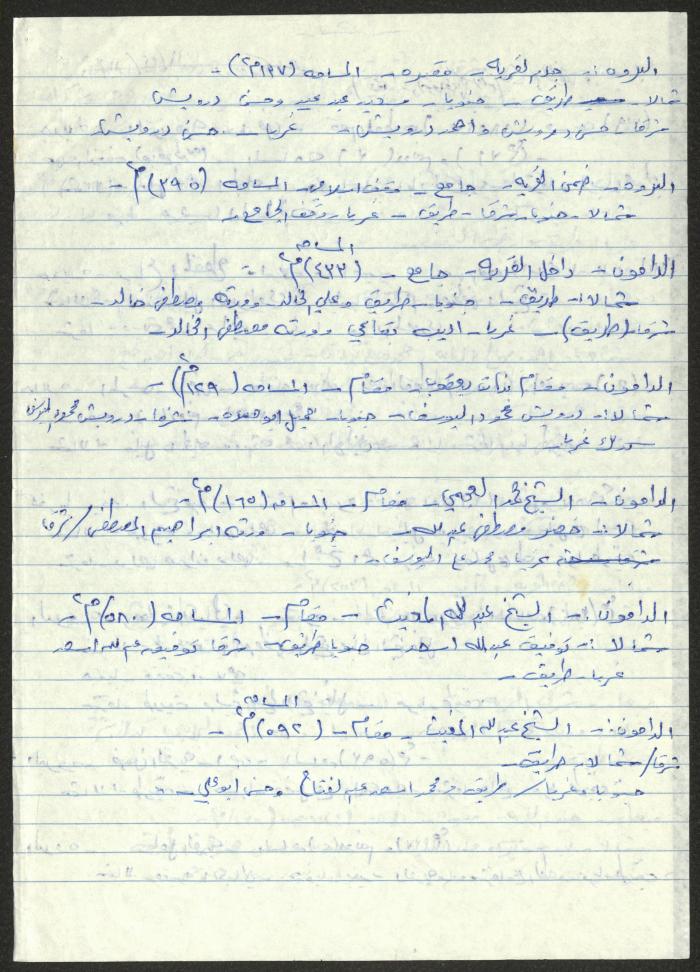 البروه :- جوار القرية - مقبره - المساحه (١٩٧ م٢) -
شمالا - طريق - جنوبا - محمد عبد وحسن درويش
شرقا - حسن درويش واحمد درويش - غربا - حسن درويش
البروه - ضمن القرية - جامع - وقف اسلامي - المساحه (٣٩٥) م٢ -
شمالا - جنوبا - شرقا - طريق - غربا - وقف الجامع -
المساحه
الدامون - داخل القريه - جامع - (٤٣٣) م٢
شمالا - طريق - جنوبا - طريق وعلي الخالد وورثه مصطفى خالد -
شرقا (طريق) - غربا - اديب بقاعي وورثه مصطفى الخالد -
الدامون - مقام بنات يعقوب - مقام - المساحه (١٢٩ م٢) -
شمالا :- درويش محمود اليوسف - جنوبا - جميل ابو - شرقا - درويش محمود
غربا -
الدامون - الشيخ محمد العجمي - مقام - المساحه (١٦٥) م٢ -
شمالا :- خضر مصطفى عبد الله - جنوبا - ورثه ابراهيم المصطفى / شرقا
غربا - محمد علي اليوسف -
الدامون :- الشيخ عبد الله - مقام - المساحه (٥٨٠٠) م٢ -
شمالا :- توفيق عبد الله اسعد - جنوبا طريق - شرقا توفيق عبد الله اسعد
غربا - طريق -
المساحه
الدامون :- الشيخ عبد الله المغيث - مقام - (٥٩٢) م٢ -
شرقا / شمالا - طريق -
جنوبا وغربا / طريق محمد اسعد عبد الفتاح وحسن ابو علي -